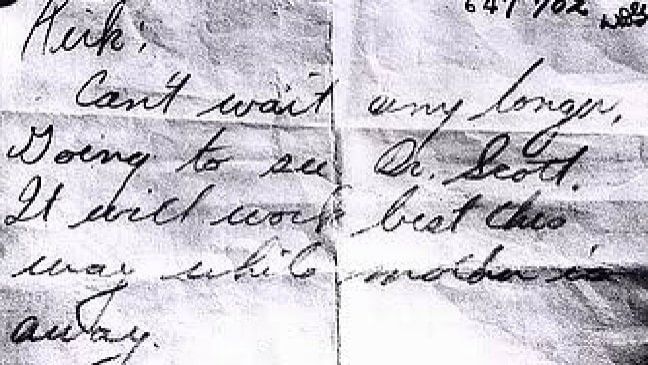 647 702
Kirk:
Can't wait any longer,
Going to see Dr. Scott.
It will work best this
way while mother is
away.